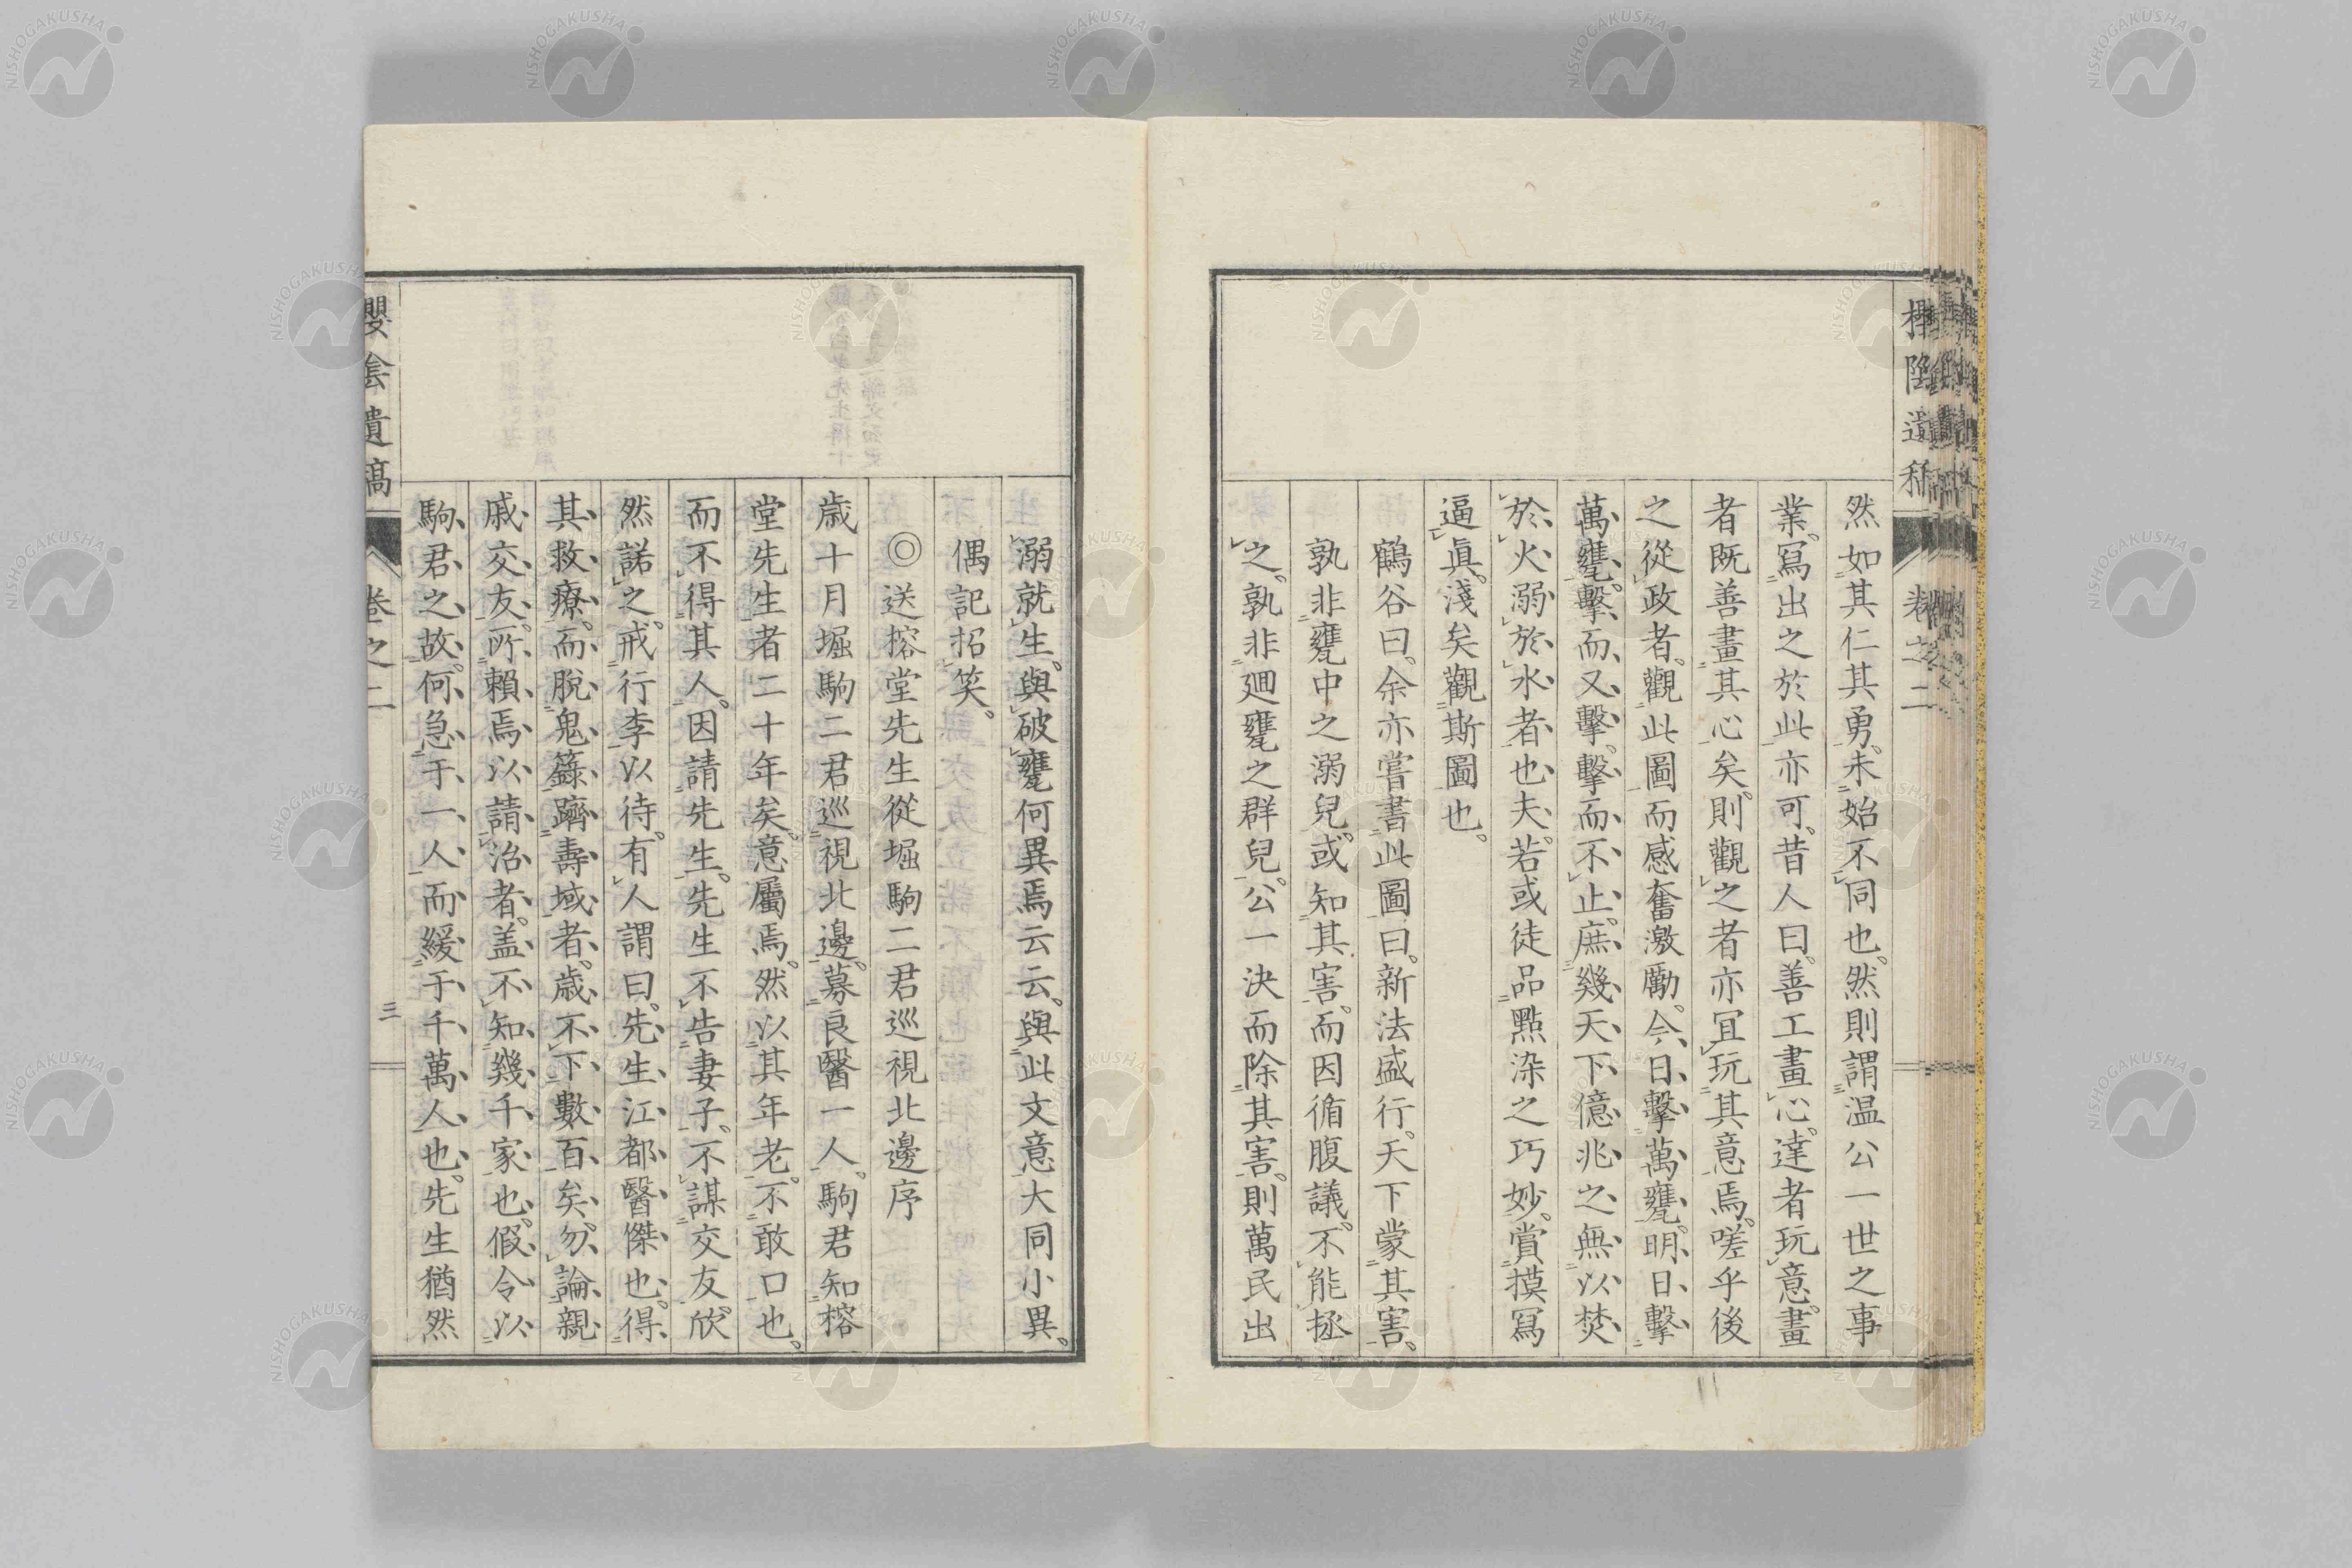 然如其仁其勇。未始不同也。然則謂温公一世之事
業。寫出之於此亦可。昔人曰。善工畫心。達者玩意。畫
者既善畫其心矣。則觀之者亦冝玩其意焉。嗟乎後
之從政者。觀此圖而感奮激勵。今日擊萬甕。明日擊
萬甕。擊而又擊。擊而不止。庶幾天下億兆之無以焚
於火溺於水者也夫。若或徒品點染之巧妙。賞摸寫
逼眞。淺矣觀斯圖也。
鶴谷曰。余亦嘗書此圖曰。新法盛行。天下蒙其害。
孰非甕中之溺兒。或知其害。而因循腹議。不能拯
之。孰非廽甕之群兒。公一決而除其害。則萬民出
溺就生。與破甕何異焉云云。與此文意大同小異。
偶記招笑。
◎送榕堂先生從堀駒二君巡視北邊序
歳十月堀駒二君巡視北邊。募良醫一人。駒君知榕
堂先生者二十年矣。意屬焉。然以其年老。不敢口也。
而不得其人。因請先生。先生不告妻子。不謀交友。欣
然諾之。戒行李以待。有人謂曰。先生江都醫傑也。得
其救療。而脱鬼籙躋壽域者。歳不下數百矣。勿論親
戚交友。所賴焉以請治者。盖不知幾千家也。假令以
駒君之故。何急于一人而緩于千萬人也。先生猶然
櫻陰遺稿 卷之二 三